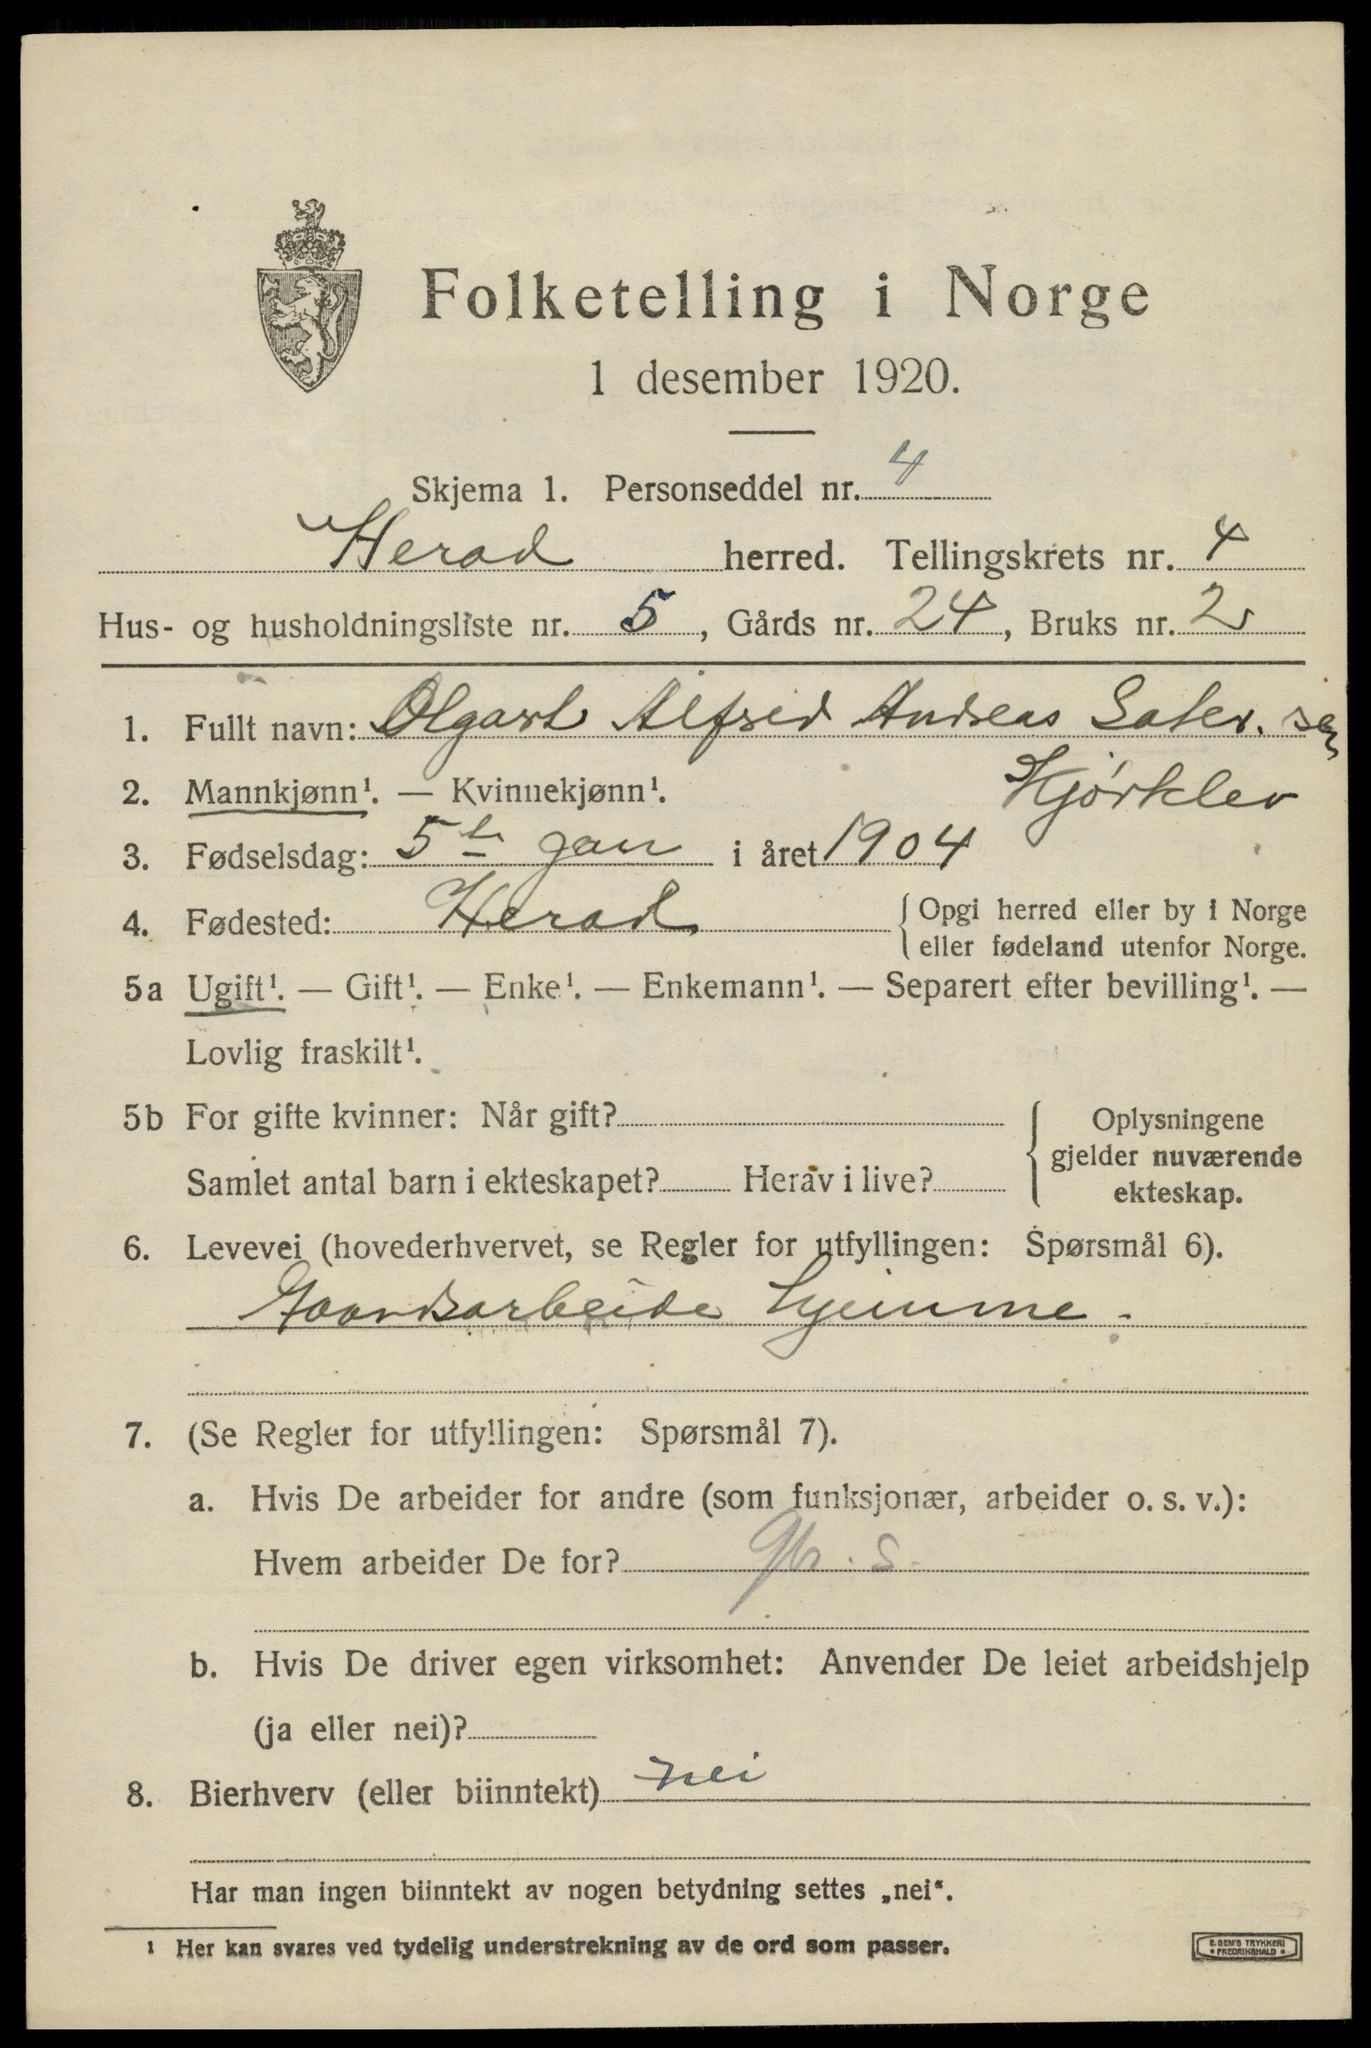 Folketelling i Norge
1 desember 1920.
Skjema 1. Personseddel nr. 4
Herad herred. Tellingskrets nr. 4
Hus- og husholdningsliste nr. 5, Gårds nr. 24, Bruks nr. 2
1. Fullt navn: Olgart Alfred Andreas Salev. sen
2. Mannkjønn¹. — Kvinnekjønn¹. Kjörklev
3. Fødselsdag: 5te jan i året 1904
4. Fødested: Herad { Opgi herred eller by i Norge
eller fødeland utenfor Norge.
5a Ugift¹. — Gift¹. — Enke¹. — Enkemann¹. — Separert efter bevilling¹. —
Lovlig fraskilt¹.
5b For gifte kvinner: Når gift? { Oplysningene
gjelder nuværende
ekteskap.
Samlet antal barn i ekteskapet? Herav i live?
6. Levevei (hovederhvervet, se Regler for utfyllingen: Spørsmål 6).
Gaardsarbeide hjemme.
7. (Se Regler for utfyllingen: Spørsmål 7).
a. Hvis De arbeider for andre (som funksjonær, arbeider o. s. v.):
Hvem arbeider De for? gbr. s.
b. Hvis De driver egen virksomhet: Anvender De leiet arbeidshjelp
(ja eller nei)?
8. Bierhverv (eller biinntekt) nei
Har man ingen biinntekt av nogen betydning settes „nei“.
¹ Her kan svares ved tydelig understrekning av de ord som passer.
E. SEM'S TRYKKERI
• FREDRIKSHALD •